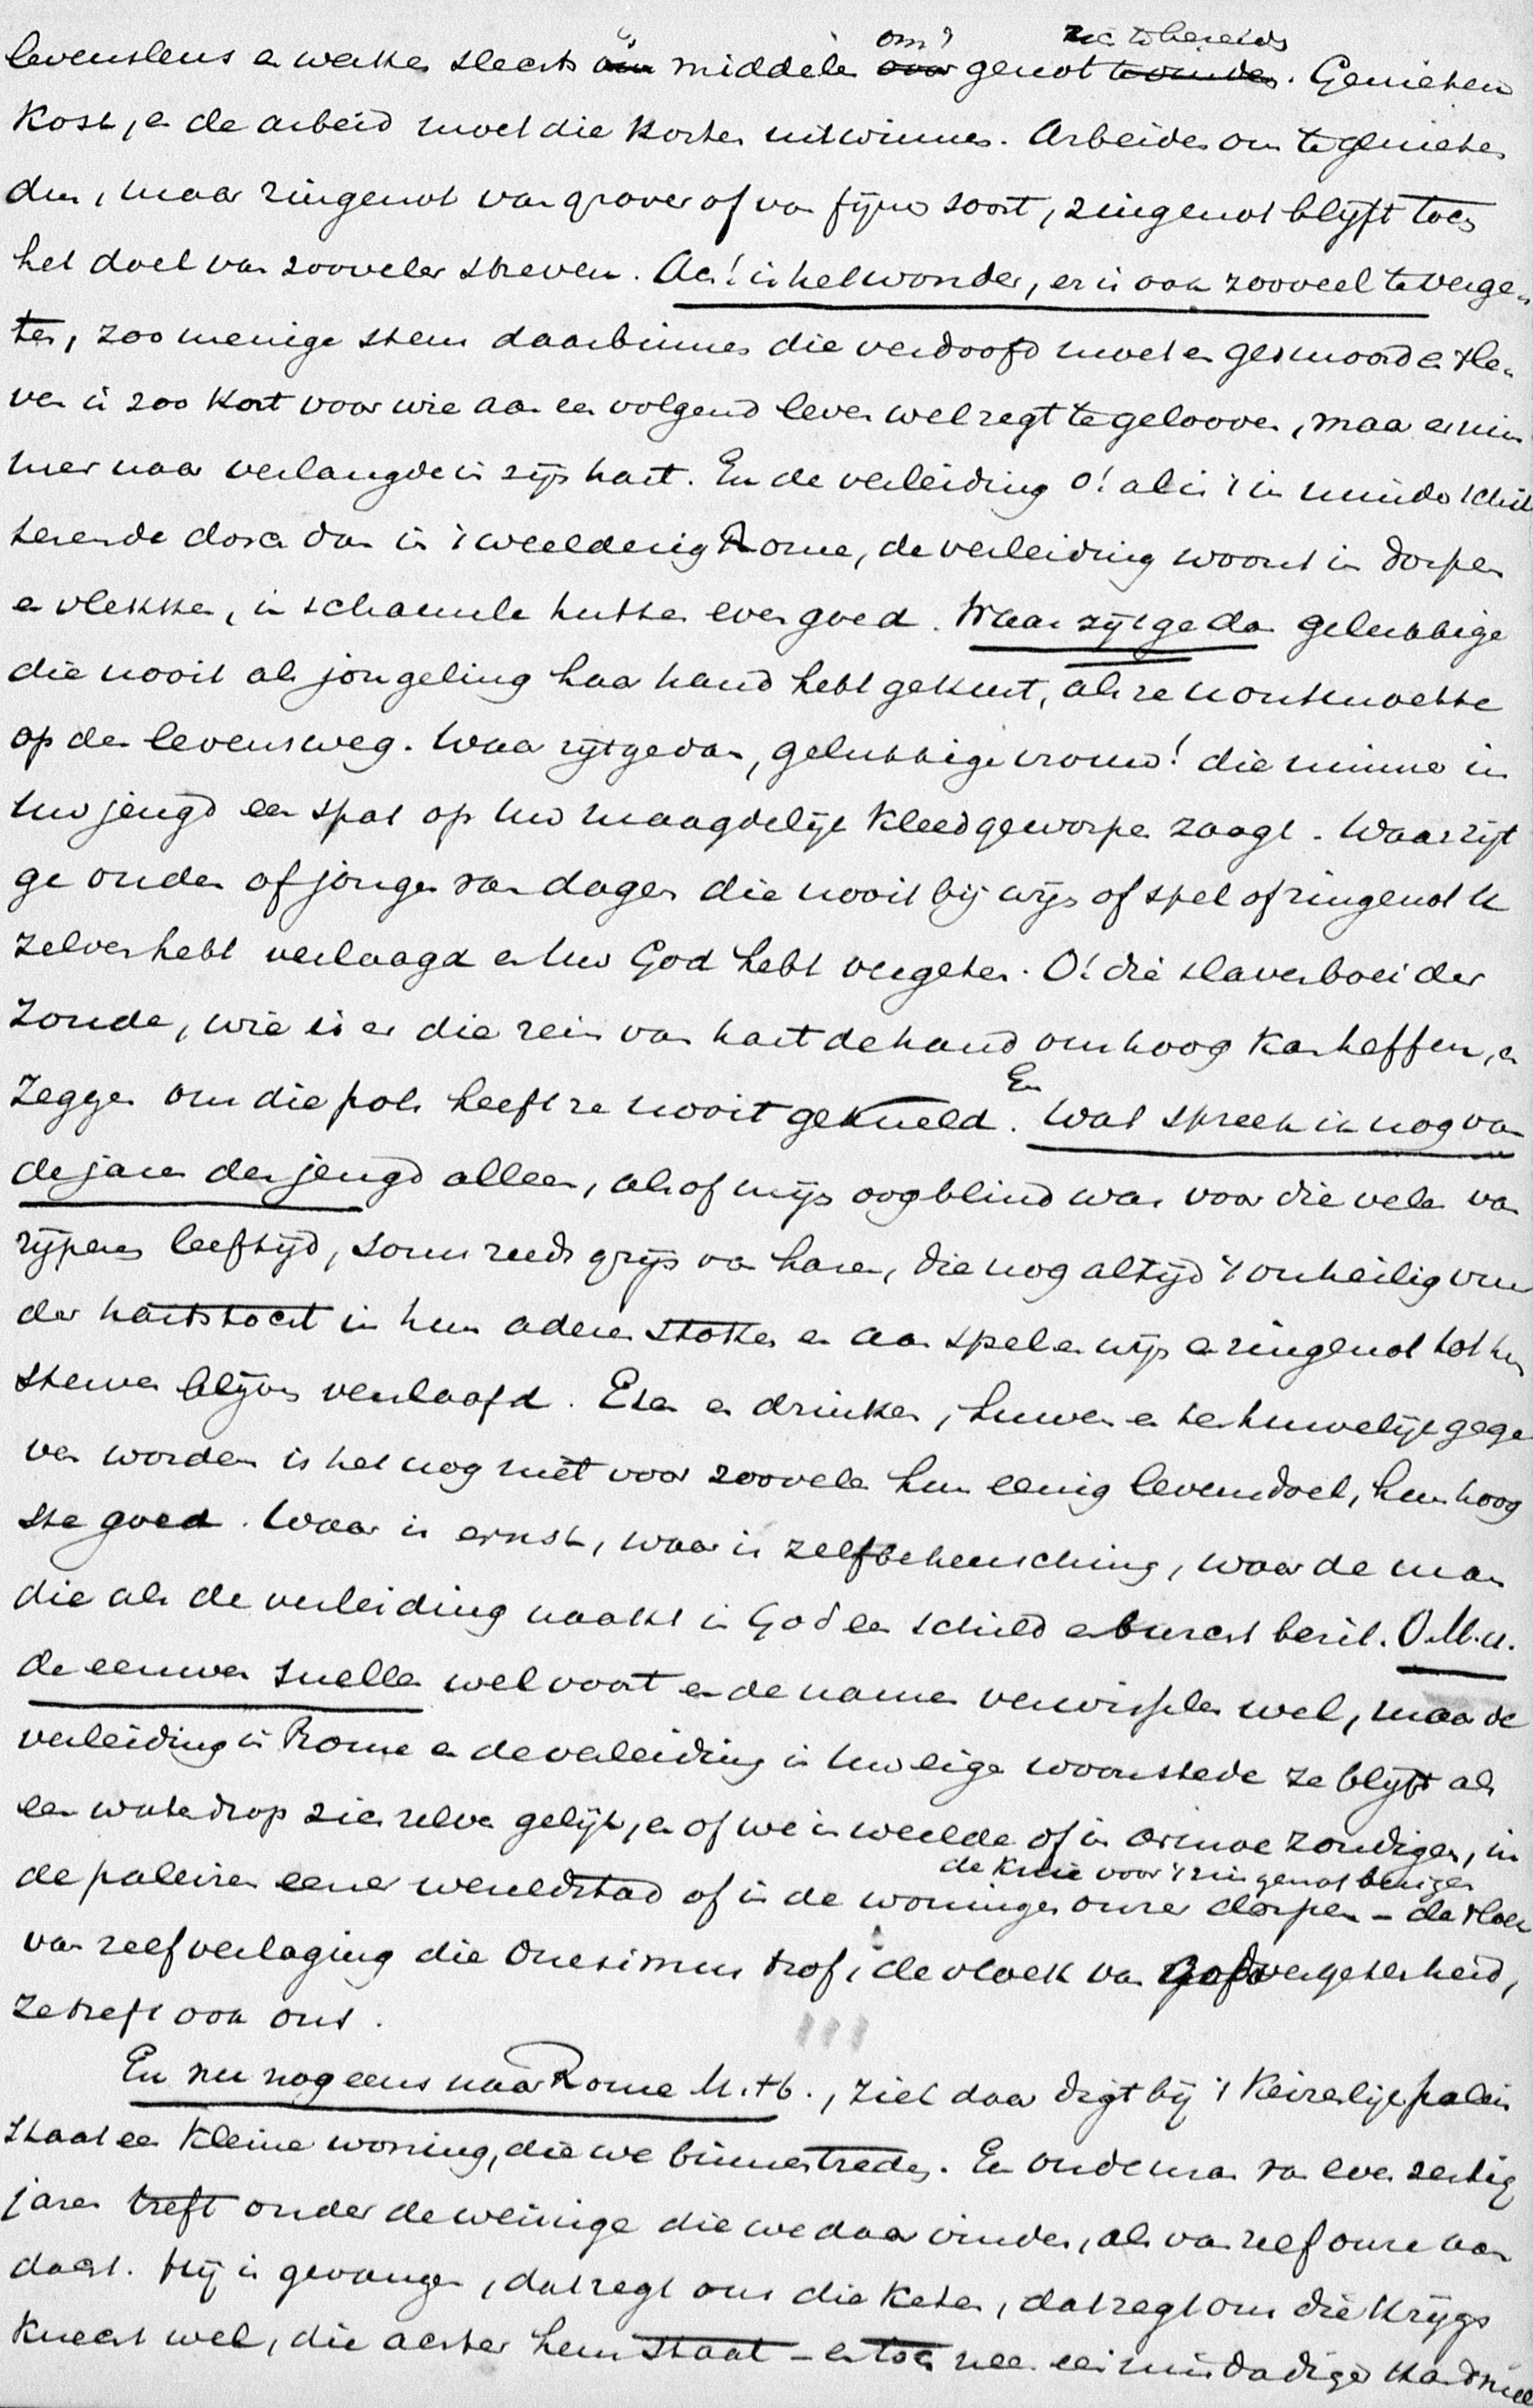 levensleus en werken slechts een middel om? over genot zich te bereiden te vinden. Genieten
kost, en de arbeid moet die kosten uitwinnen. Arbeiden om te genieten
dus, maar zingenot van grover of van fijner soort, zingenot blijft toch
het doel van zooveler streven. Ach! is het wonder, er is ook zooveel te verge-
ten, zoo menige stem daarbinnen die verdoofd moet en gesmoord en 't le-
ven is zoo kort voor wie aan een volgend leven wel zegt te gelooven, maar er nim
mer naar verlangde in zijn hart. En de verleiding o! al is 't in minder schit
terende dosch dan in 't weelderig Rome, de verleiding woont in dorpen
en vlekken, in schamele hutten even goed. Waar zijt ge dan gelukkige
die nooit als jongeling haar hand hebt gekust, als ze u ontmoette
op den levensweg. Waar zijt ge dan, gelukkige vrouw! die nimmer in
uw jeugd een spat op uw maagdelijk kleed geworpen zaagt. Waar zijt
ge ouden of jongen van dagen die nooit bij wijn of spel of zingenot u
zelven hebt verlaagd en uw God hebt vergeten. O! die slavenboei der
zonde, wie is er die rein van hart de hand omhoog kan heffen, en
zeggen om die pols heeft ze nooit gekneld. En Wat spreek ik nog van
de jaren der jeugd alleen, alsof mijn oog blind was voor die velen van
rijperen leeftijd, soms reeds grijs van haren, die nog altijd 't onheilig vuur
der hartstocht in hun aderen stoken en aan spel en wijn en zingenot tot hun
sterven blijven verslaafd. Eten en drinken, huwen en ten huwelijk gege
ven worden is het nog niet voor zoovelen hun eenig levensdoel, hun hoog
ste goed. Waar is ernst, waar is zelfbeheersching, waar de man
die als de verleiding naakt in God een schild en burcht bezit. O. M. H.
de eeuwen snellen wel voort en de namen verwisselen wel, maar de
verleiding in Rome en de verleiding in uw eigen woonstede ze blijft als
een waterdrop zich zelve gelijk, en of we in weelde of in armoe zondigen, in
de paleizen eener wereldstad of in de woningen onzer dorpen de knie voor 't zingenot buigen – de vloek
van zelfverlaging die Onesimus trof, de vloek van Godvergetenheid,
ze treft ook ons.
En nu nog eens naar Rome M. H., ziet daar digt bij 't Keizerlijk paleis
staat een kleine woning, die we binnentreden. Een oude man van even zestig
jaren treft onder de weinige die we daar vinden, als van zelf onze aan
dacht. Hij is gevangen, dat zegt ons die keten, dat zegt ons die krijgs
knecht wel, die achter hem staat – en toch nee een misdadiger kan 't niet